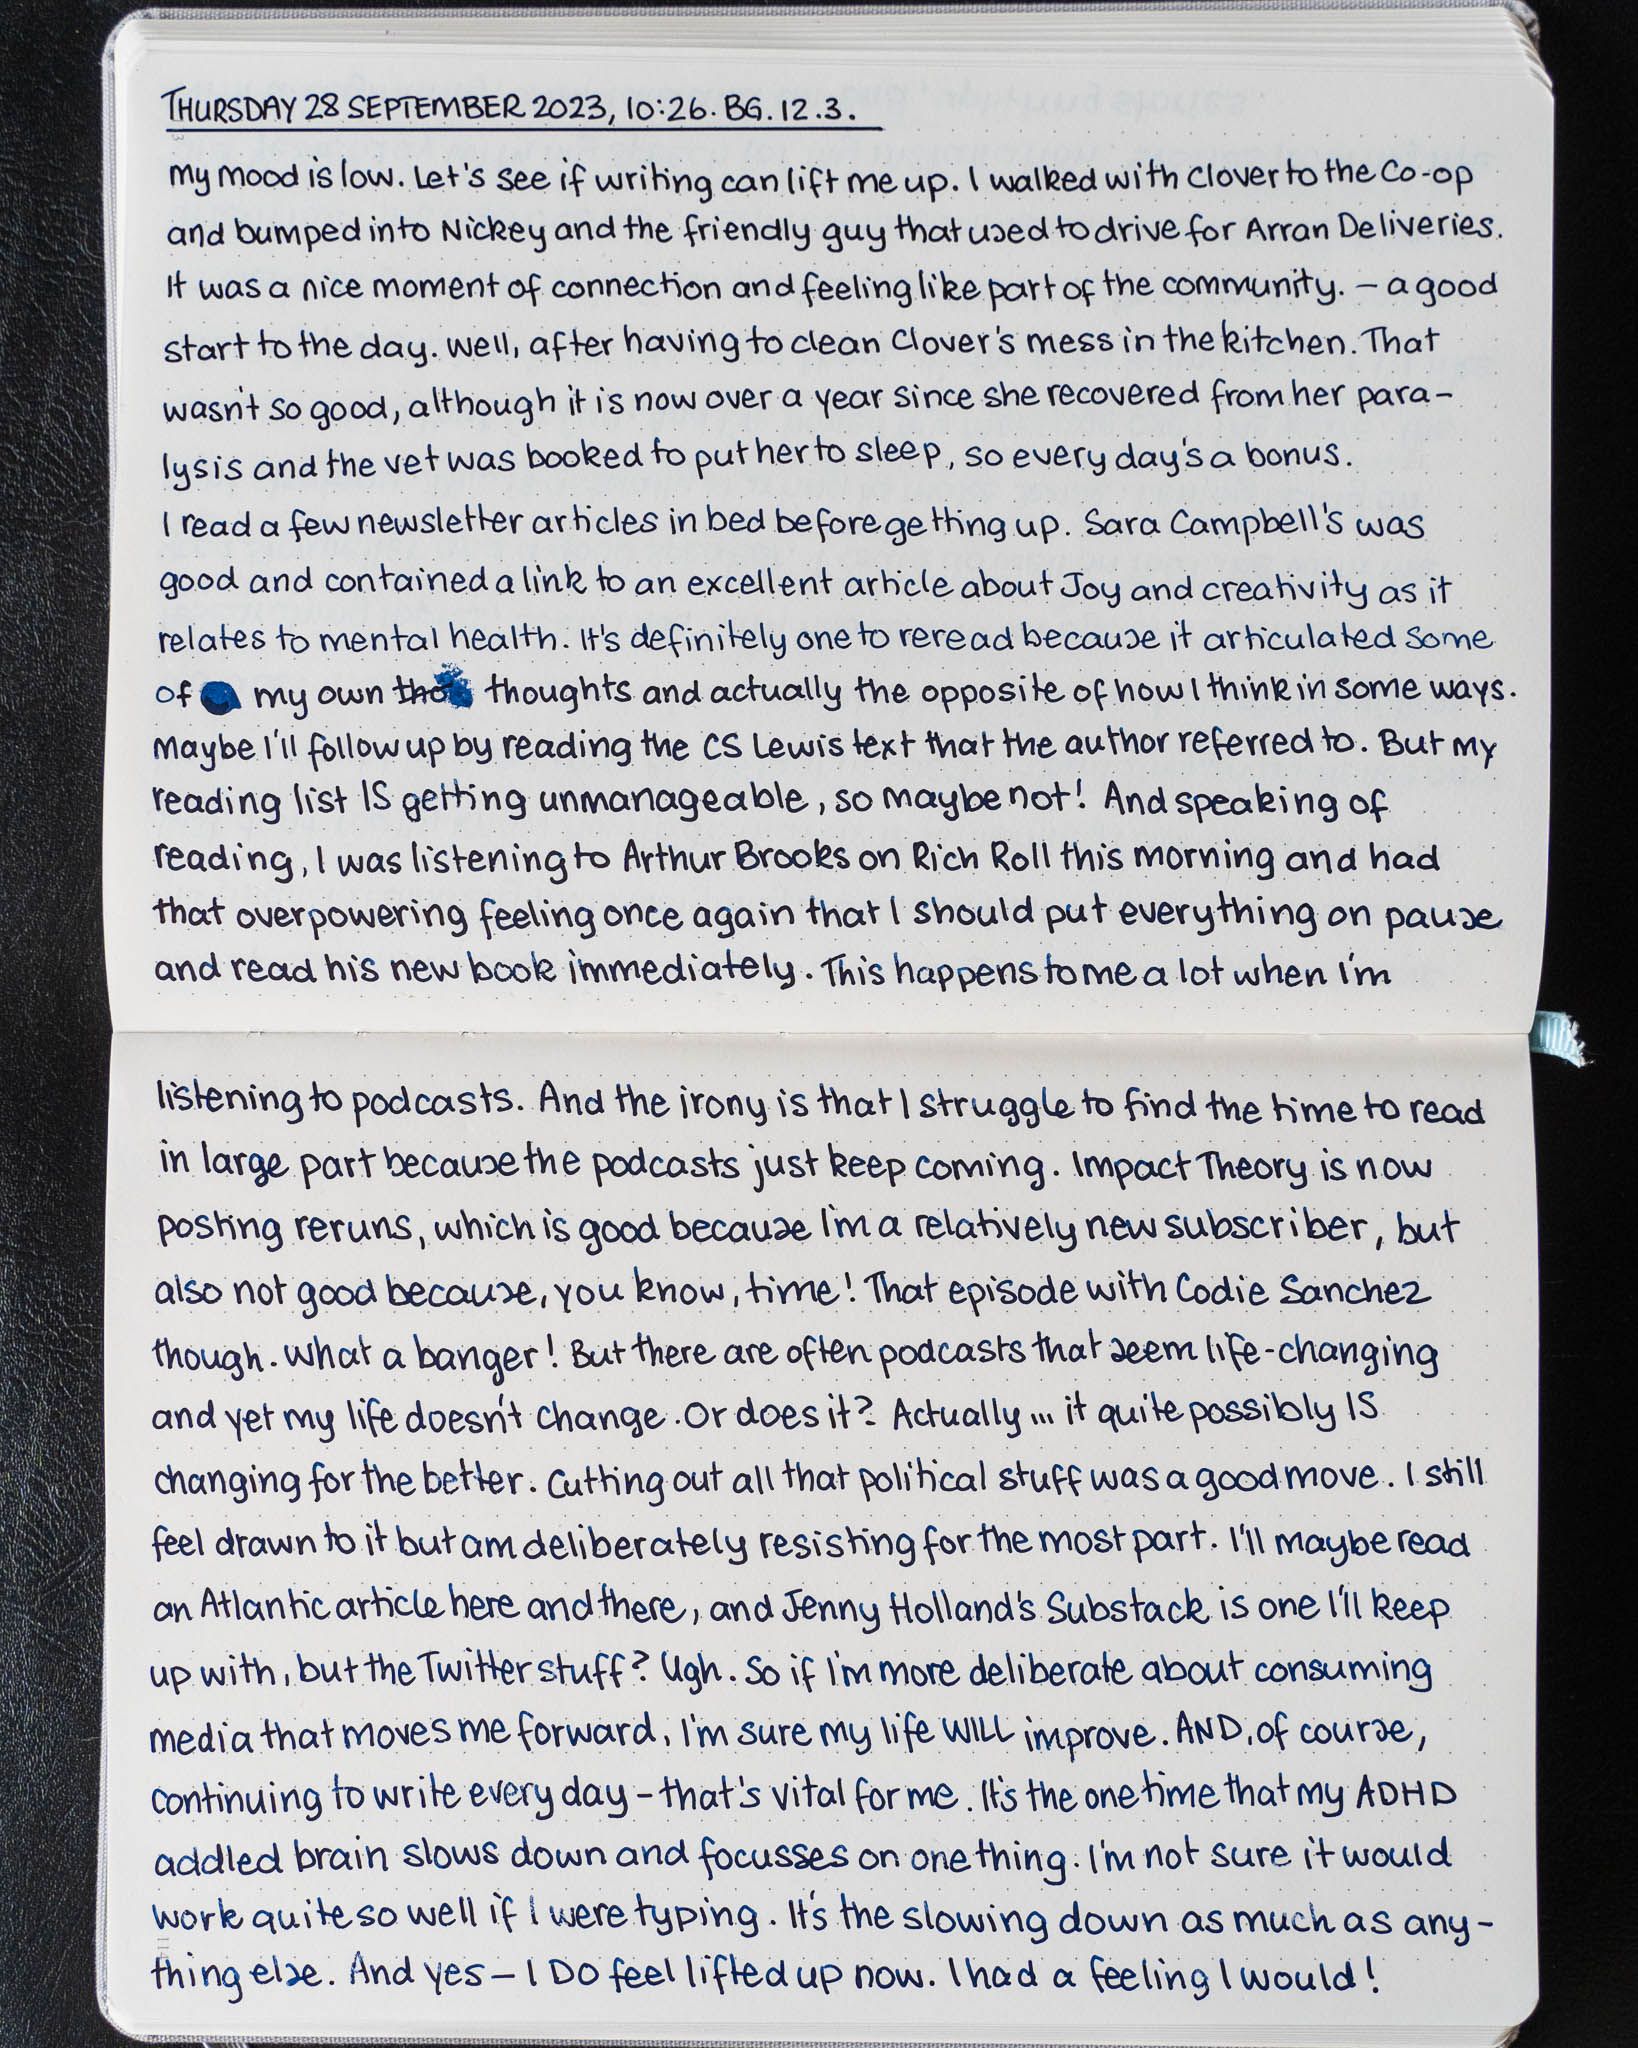 THURSDAY 28 SEPTEMBER 2023, 10:26. BG. 12.3.
My mood is low. Let's see if writing can lift me up. I walked with Clover to the Co-op
and bumped into Nickey and the friendly guy that used to drive for Arran Deliveries.
It was a nice moment of connection and feeling like part of the community. – a good
start to the day. Well, after having to clean Clover's mess in the kitchen. That
wasn't so good, although it is now over a year since she recovered from her para-
lysis and the vet was booked to put her to sleep, so every day's a bonus.
I read a few newsletter articles in bed before getting up. Sara Campbell's was
good and contained a link to an excellent article about Joy and creativity as it
relates to mental health. It's definitely one to reread because it articulated some
of my own thoughts and actually the opposite of how I think in some ways.
Maybe I'll follow up by reading the CS Lewis text that the author referred to. But my
reading list IS getting unmanageable, so maybe not! And speaking of
reading, I was listening to Arthur Brooks on Rich Roll this morning and had
that overpowering feeling once again that I should put everything on pause
and read his new book immediately. This happens to me a lot when I'm
listening to podcasts. And the irony is that I struggle to find the time to read
in large part because the podcasts just keep coming. Impact Theory is now
posting reruns, which is good because I'm a relatively new subscriber, but
also not good because, you know, time! That episode with Codie Sanchez
though. What a banger! But there are often podcasts that seem life-changing
and yet my life doesn't change. Or does it? Actually ... it quite possibly IS
changing for the better. Cutting out all that political stuff was a good move. I still
feel drawn to it but am deliberately resisting for the most part. I'll maybe read
an Atlantic article here and there, and Jenny Holland's Substack is one I'll keep
up with, but the Twitter stuff? Ugh. So if I'm more deliberate about consuming
media that moves me forward, I'm sure my life WILL improve. AND, of course,
continuing to write every day – that's vital for me. It's the one time that my ADHD
addled brain slows down and focusses on one thing. I'm not sure it would
work quite so well if I were typing. It's the slowing down as much as any-
thing else. And yes – I DO feel lifted up now. I had a feeling I would!